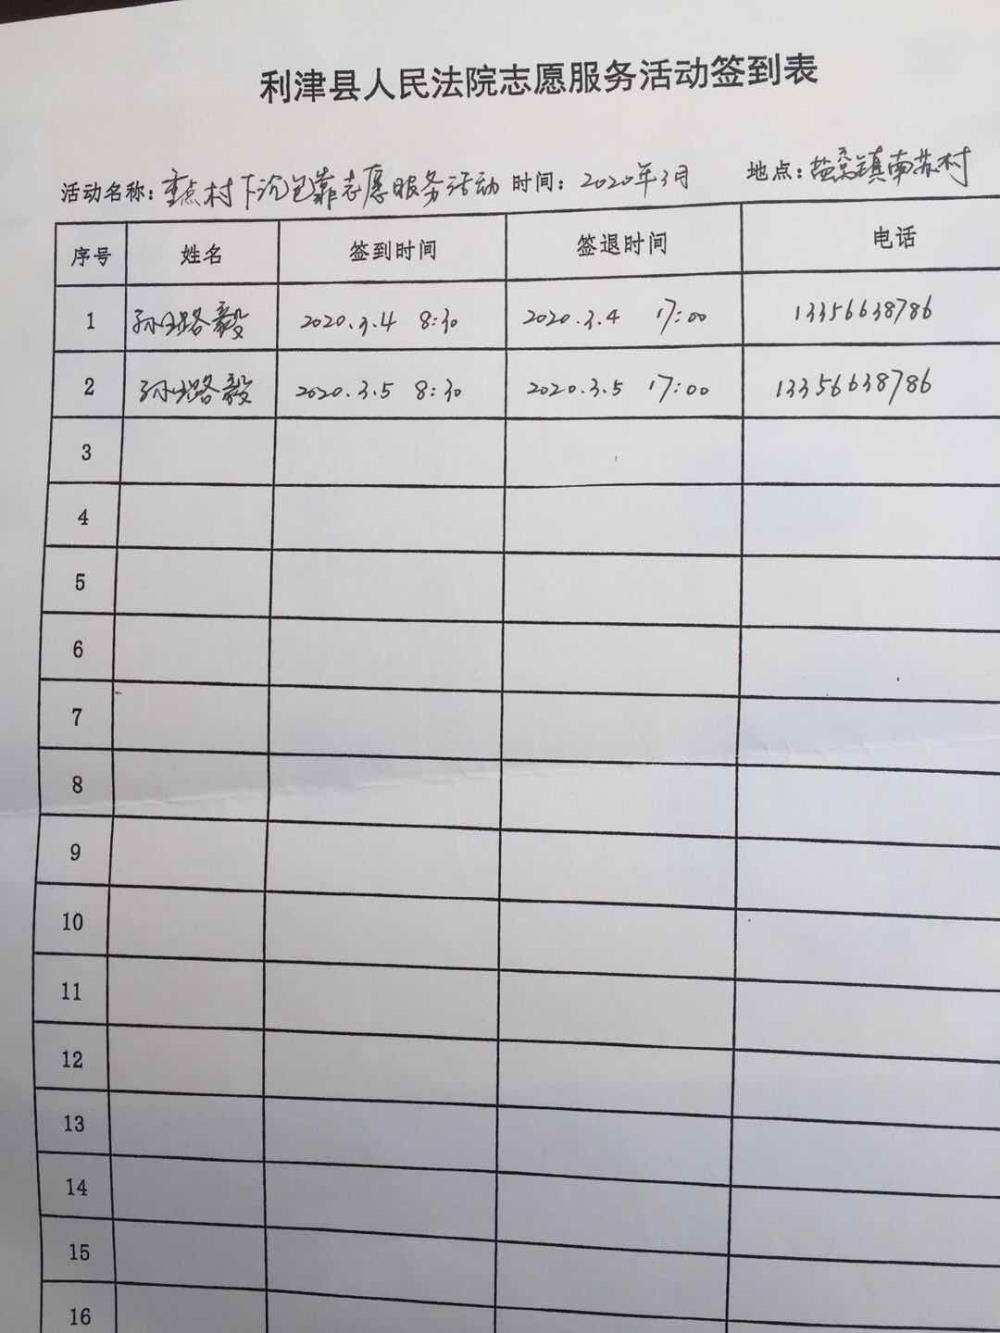 利津县人民法院志愿服务活动签到表
活动名称：重点村下沉包靠志愿服务活动 时间：2020年3月 地点：盐窝镇南苏村
序号 姓名 签到时间 签退时间 电话
1 孙 路毅 2020.3.4 8:30 2020.3.4 17:00 13356638786
2 孙 路毅 2020.3.5 8:30 2020.3.5 17:00 13356638786
3
4
5
6
7
8
9
10
11
12
13
14
15
16